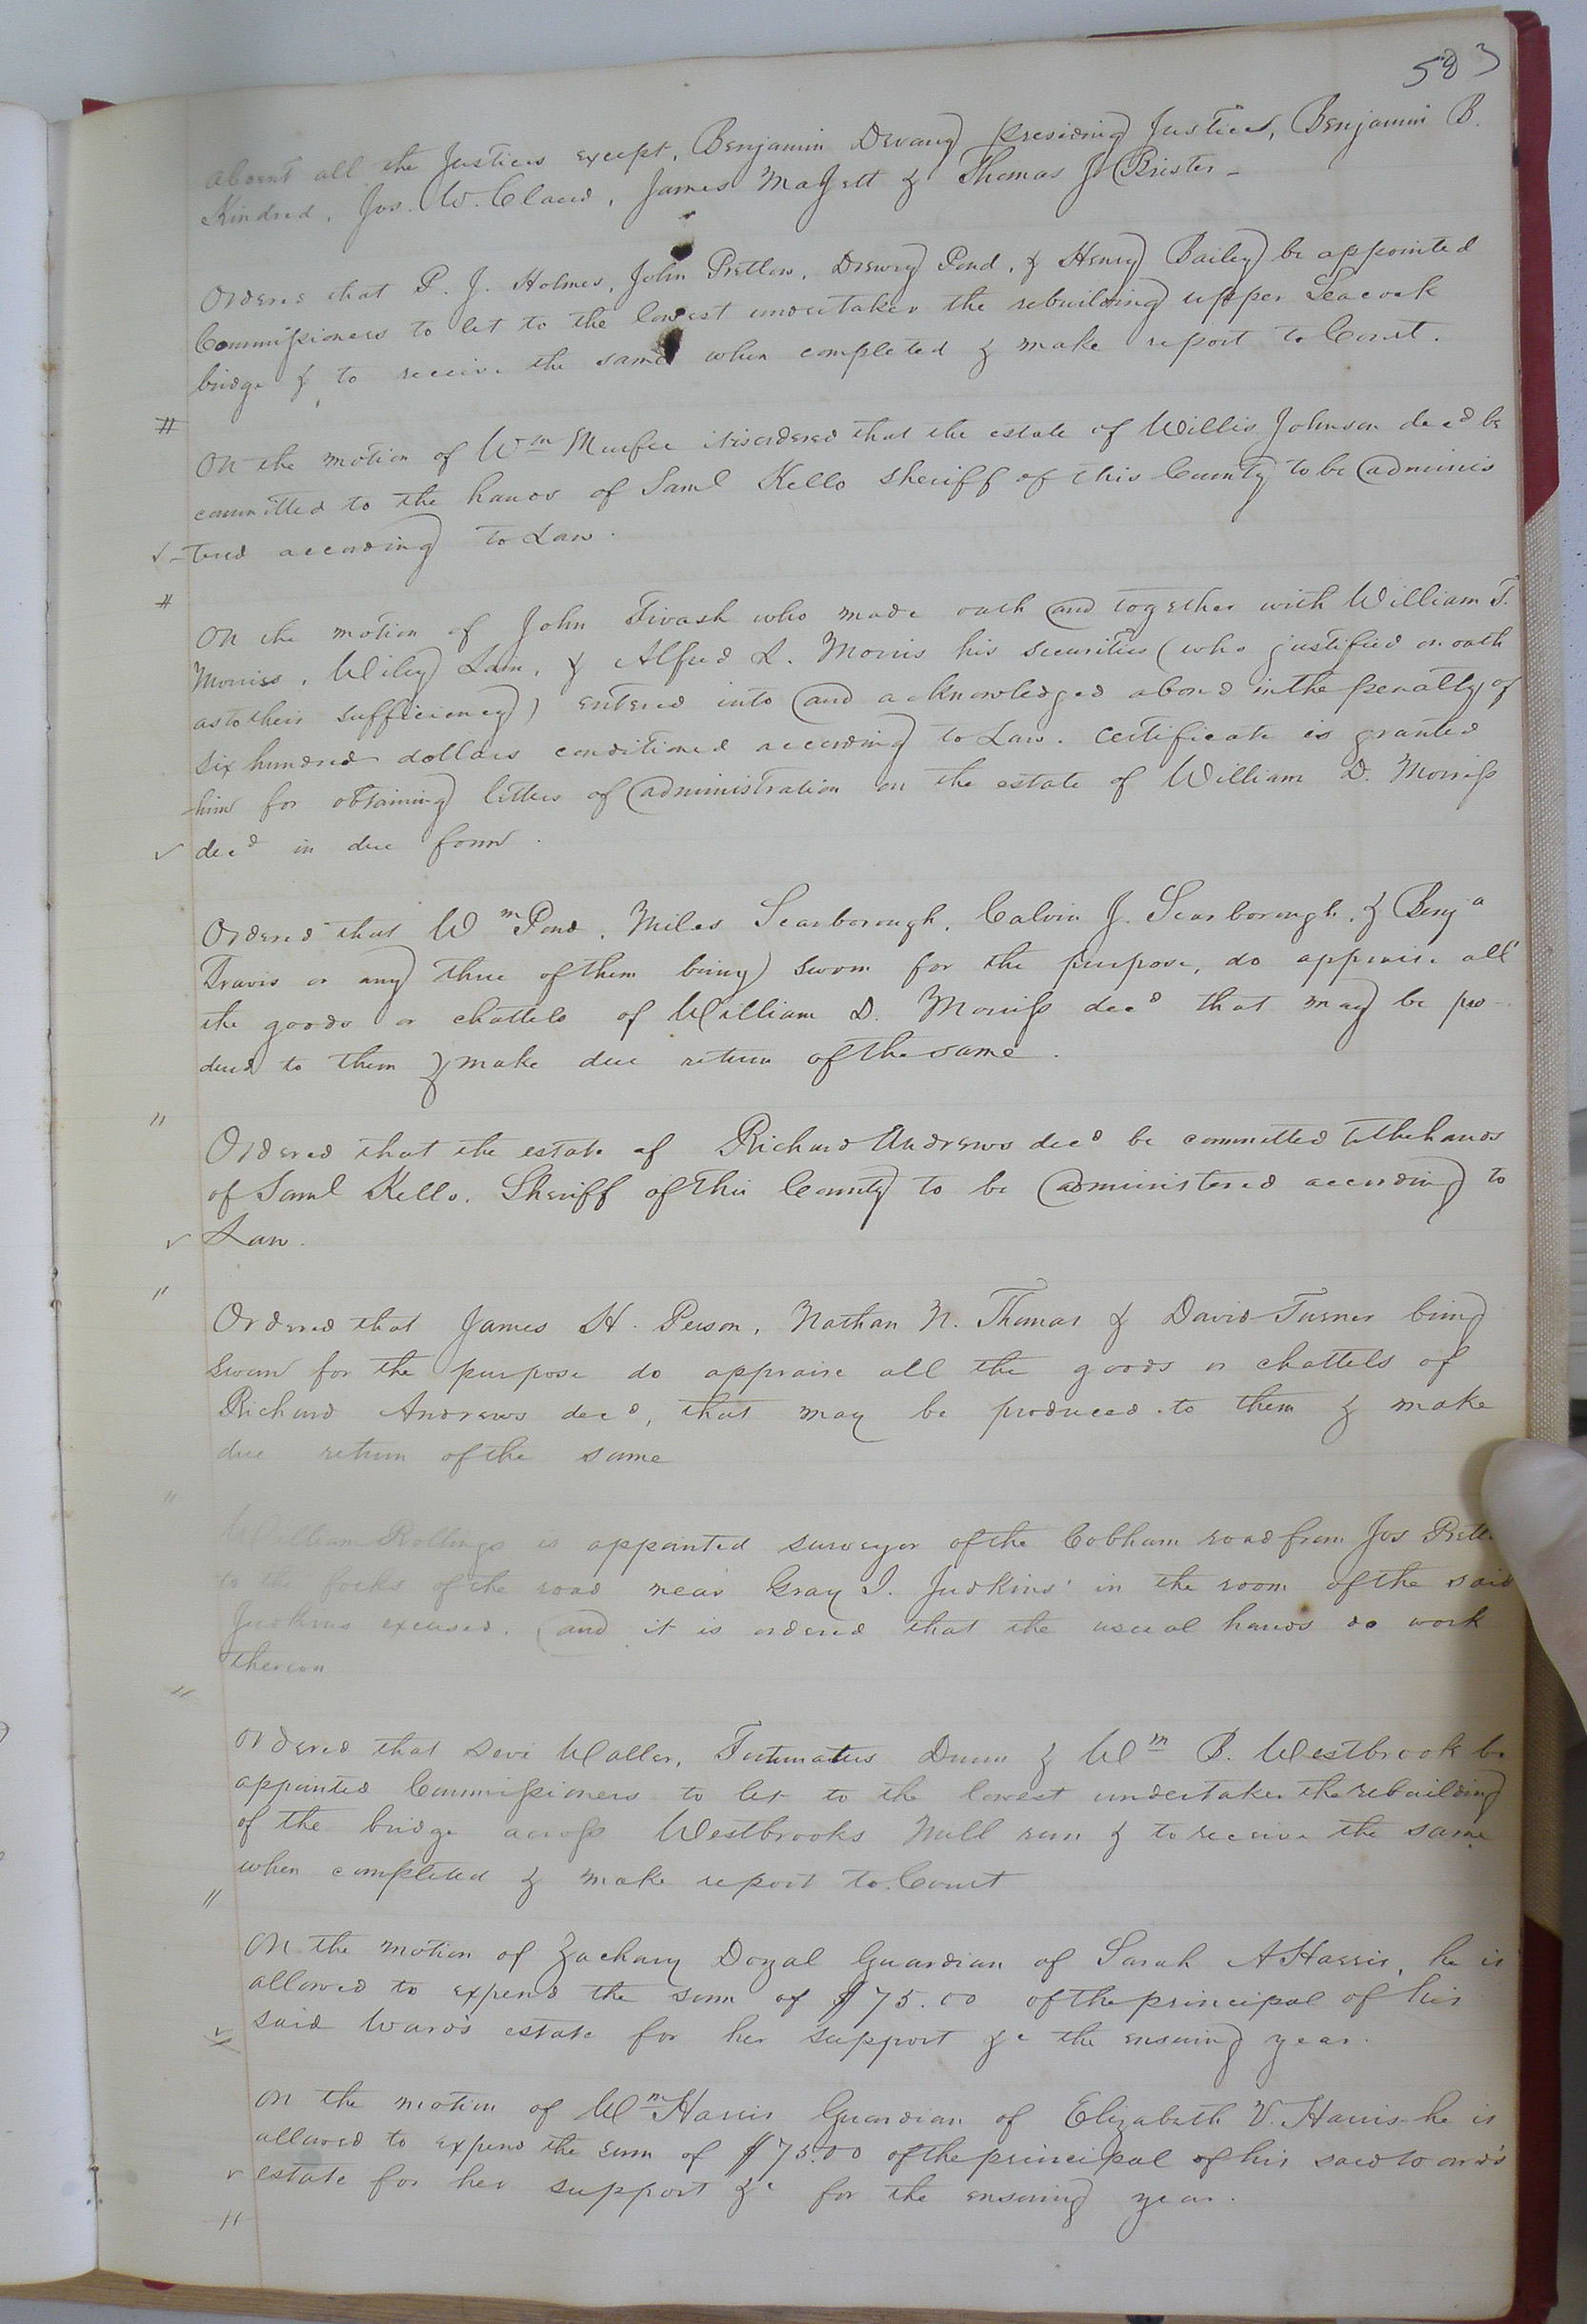 583
Absent all the Justices except, Benjamin Devany presiding Justice, Benjamin B.
Kindred, Jos. W. Claud, James Magett & Thomas J. Brister -
Ordered that P. J. Holmes, John Pretlow, Drewry Pond, & Henry Bailey be appointed
Commissioners to let to the lowest undertaker the rebuilding upper Seacock
bridge & to receive the same when completed & make report to Court.
#
On the motion of Wm Murfee it is ordered that the estate of Willis Johnson decd be
committed to the hands of Saml Kello sheriff of this County to be adminis
✓ - tered according to Law.
#
On the motion of John Tivash who made oath and together with William T.
Morriss, Wiley Lain, & Alfred L. Morris his securities (who justified on oath
as to their sufficiency) entered into and acknowledged a bond in the penalty of
six hundred dollars conditioned according to Law. Certificate is granted
him for obtaining letters of administration on the estate of William D. Morriss
✓ decd in due form.
Ordered that Wm Pond, Miles Scarborough, Calvin J. Scarborough, & Benja
Travis or any three of them being sworn for the purpose, do appraise all
the goods or chattels of William D. Morriss decd that may be pro-
duced to them & make due return of the same.
"
Ordered that the estate of Richard Andrews decd be committed to the hands
of Saml Kello, Sheriff of this County to be administered according to
✓ Law.
"
Ordered that James H. Person, Nathan N. Thomas & David Turner being
sworn for the purpose do appraise all the goods or chattels of
Richard Andrews decd, that may be produced to them & make
due return of the same
"
William Rollings is appointed surveyor of the Cobham road from Jos Pretl
to the forks of the road near Gray J. Judkins' in the room of the said
Judkins excused, and it is ordered that the usual hands do work
thereon
"
Ordered that Levi Waller, Fortunatus Dunn & Wm B. Westbrook be
appointed Commissioners to let to the lowest undertaker the rebuilding
of the bridge across Westbrooks Mill run & to receive the same
when completed & make report to Court
"
On the motion of Zachary Doyal Guardian of Sarah A Harris, he is
allowed to expend the sum of $75.00 of the principal of his
✓ said ward's estate for her support &c the ensuing year.
On the motion of Wm Harris Guardian of Elizabeth V. Harris he is
allowed to expend the sum of $75.00 of the principal of his said ward's
✓ estate for her support &c for the ensuing year.
"